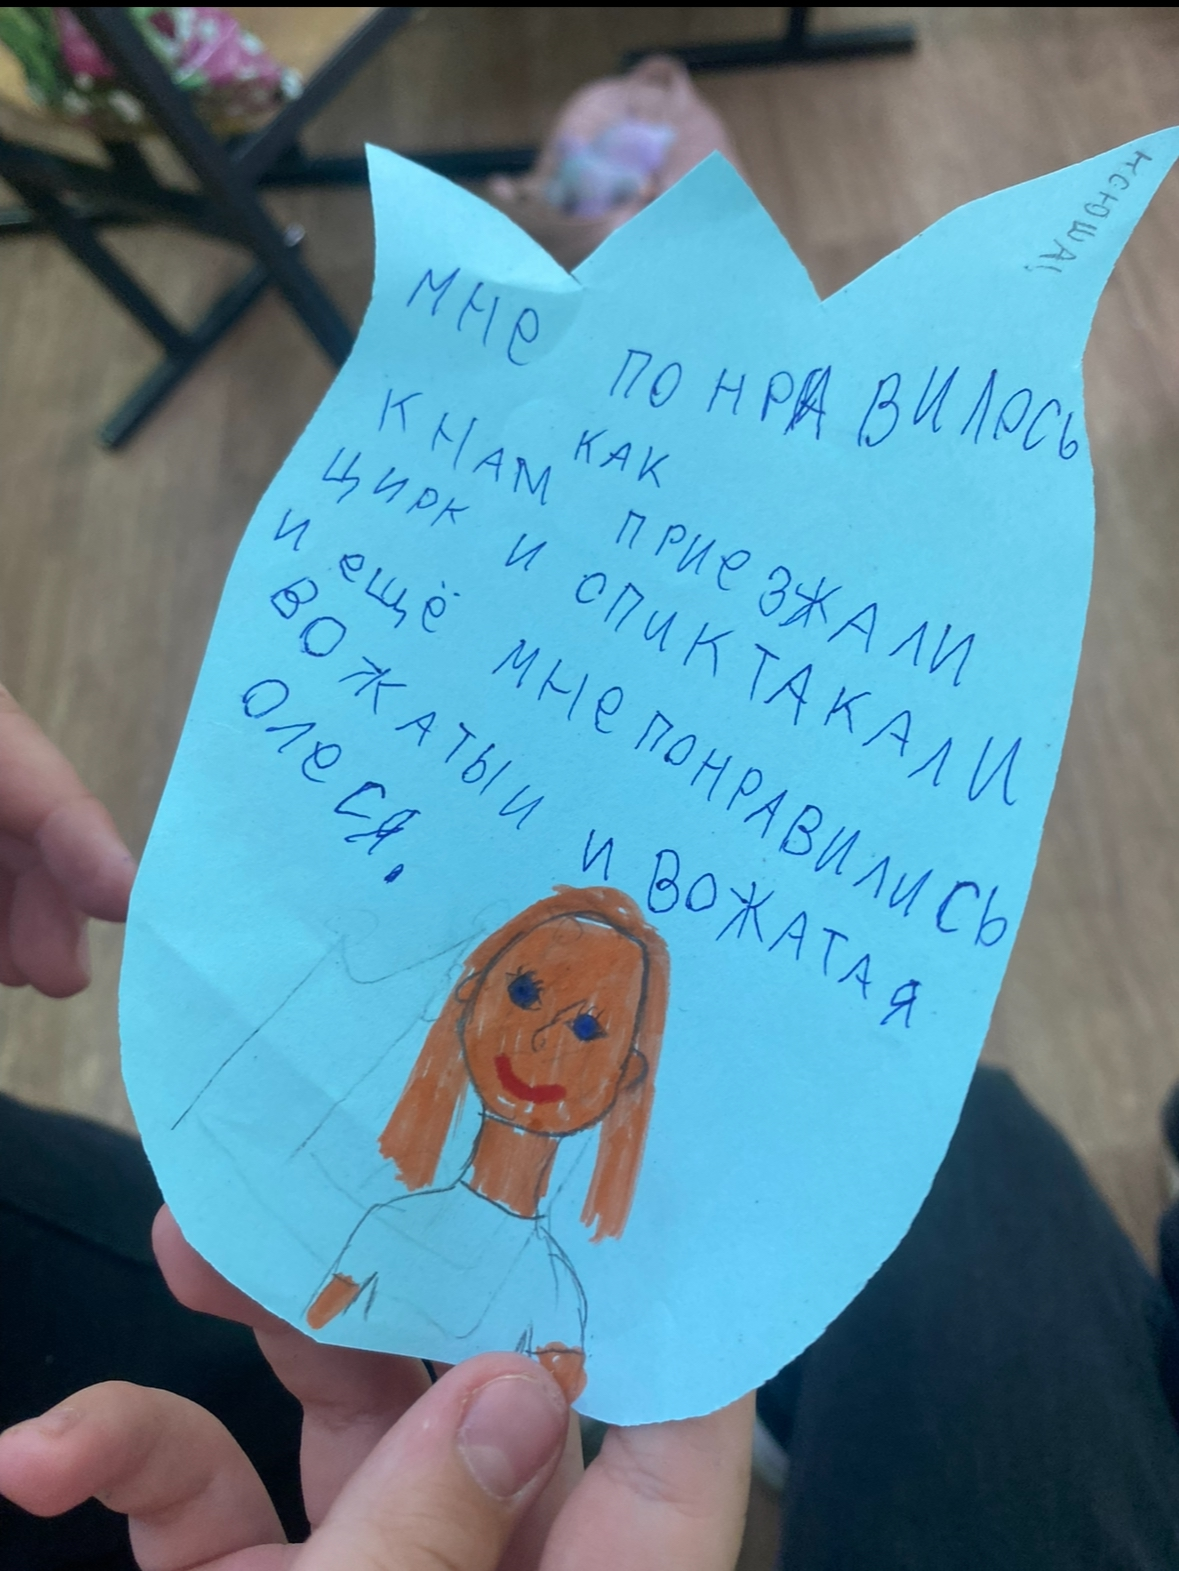 Ксюша!
Мне понравилось
как
к нам приезжали
цирк и спиктакали
и ещё мне понравились
вожатыи и вожатая
Олеся.